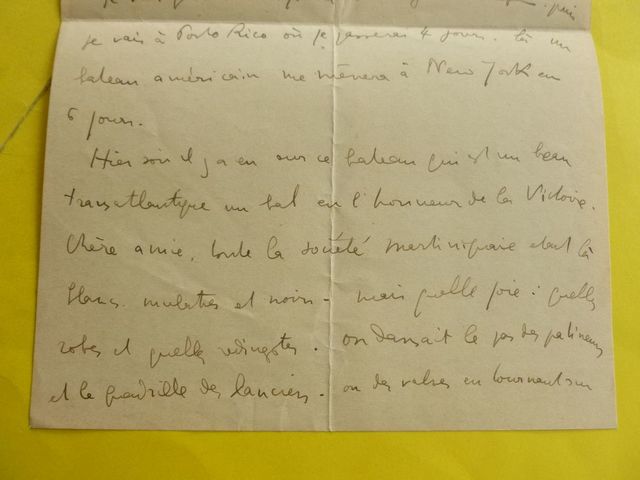 je vais à Porto Rico où je passerai 4 jours. Là un
bateau américain me mènera à New York en
6 jours.
Hier soir il y a eu sur ce bateau qui est un beau
transatlantique un bal en l'honneur de la Victoire.
Chère amie, toute la société martiniquaise était là
blancs mulatres et noirs - mais quelle joie : quelles
robes et quelles redingotes. on dansait le pas des patineurs
et le quadrille des lanciers. ou des valses en tournant sur